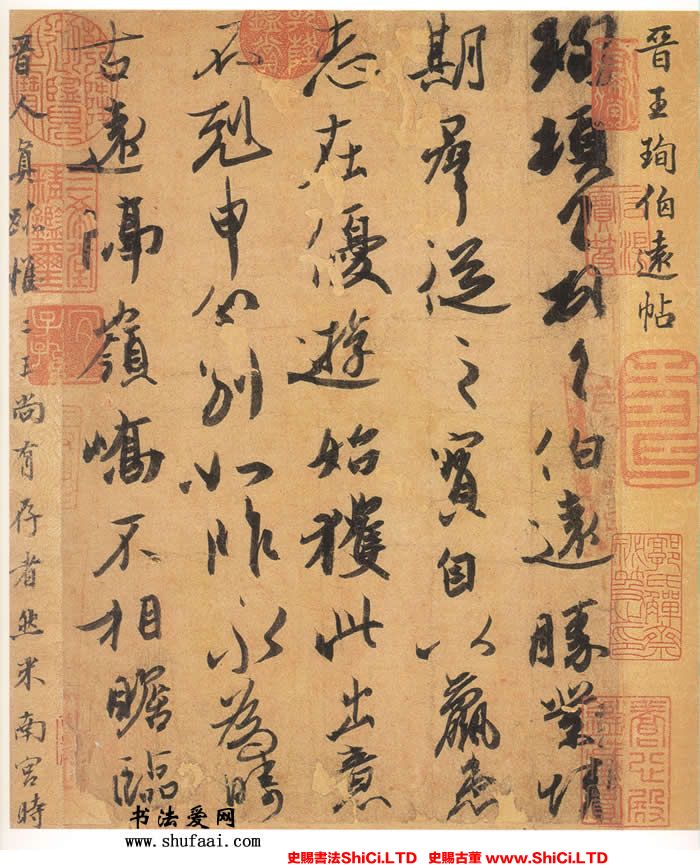 晉王珣伯遠帖
珣頓首頓首伯遠勝業情
期羣從之寶自以羸患
志在優遊始獲此出意
不剋申分別如昨永為疇
古遠隔嶺嶠不相瞻臨
晉人真跡惟二王尚有存者然米南宮時
书法爱网
www.shufaai.com
史賜書法ShiCi.LTD 史賜古董 www.ShiCi.LTD